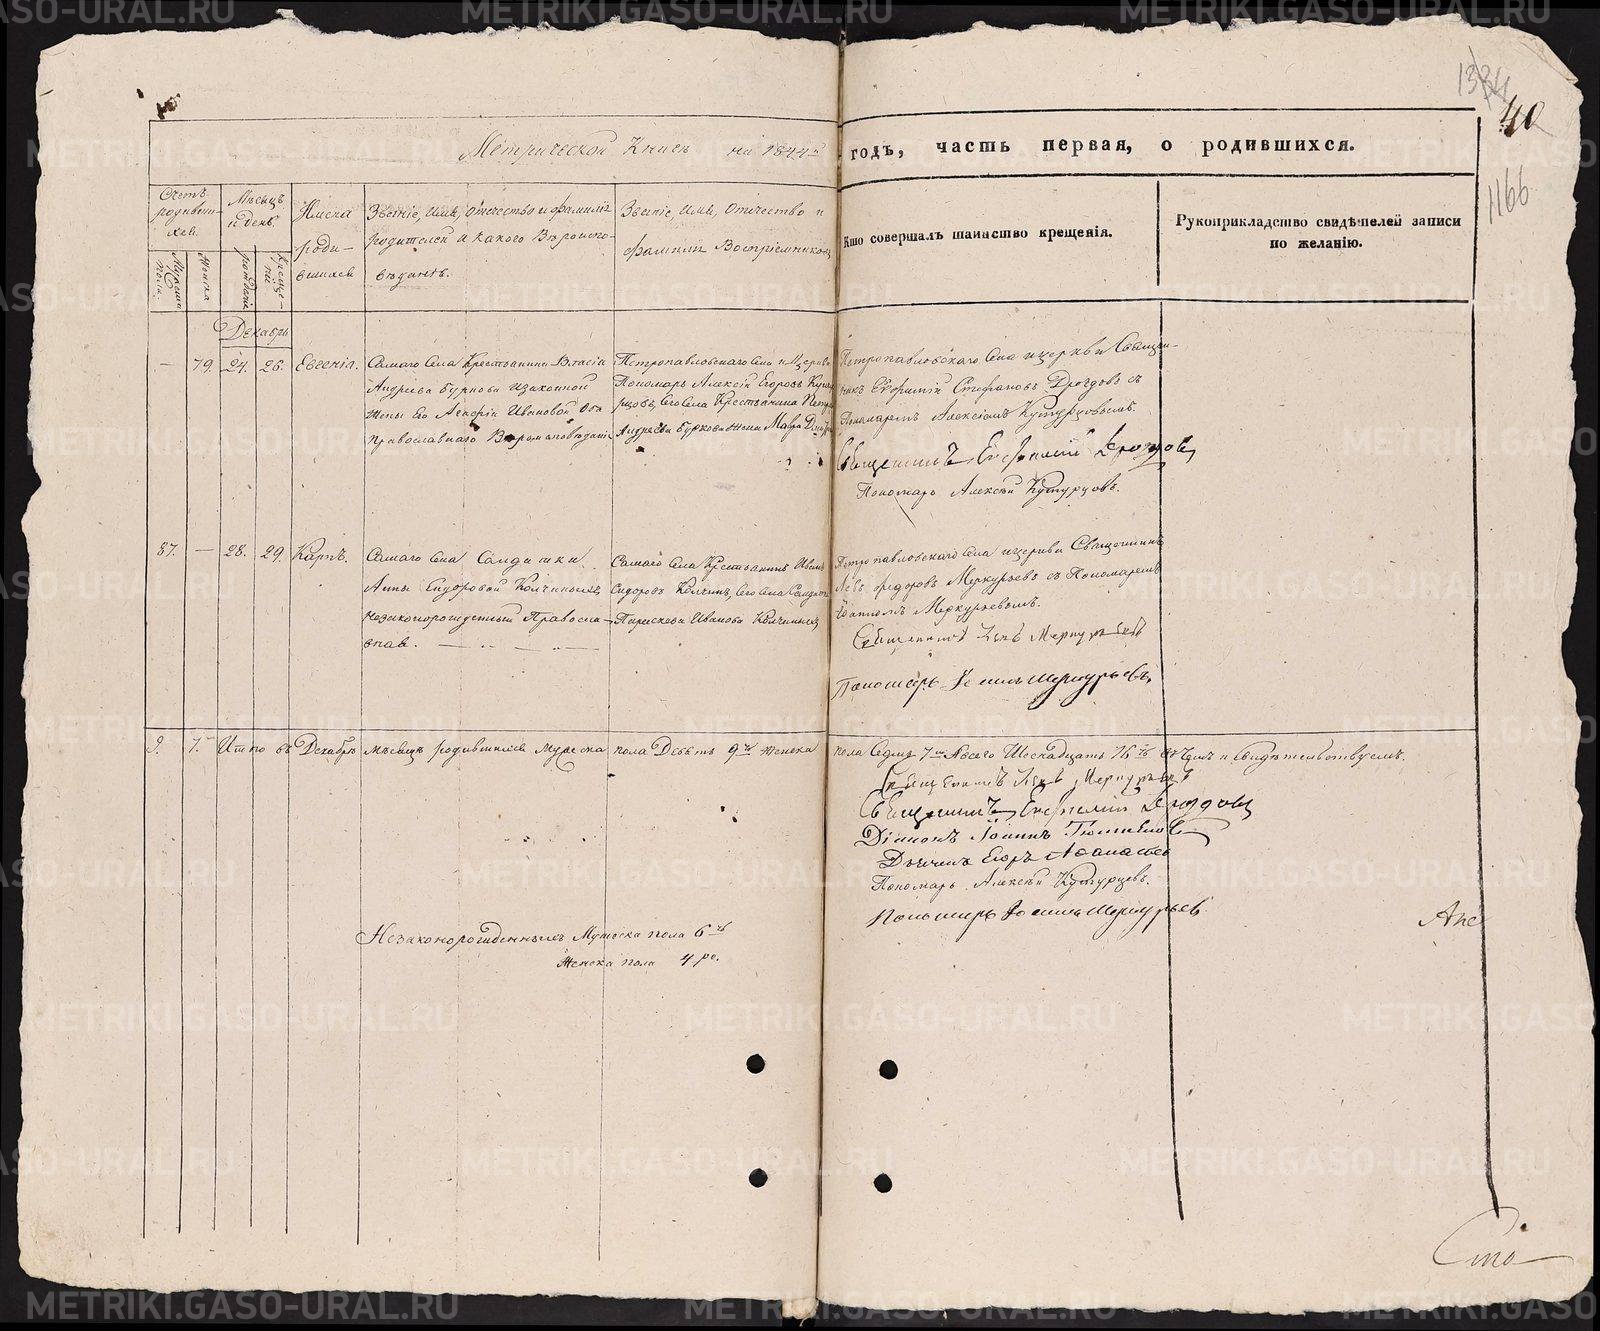 1334
40
1166
Метрической Книгѣ на 1844й годъ, часть первая, о родившихся.
Счетъ родившихся.
Мужеска пола.
Женска
Мѣсяцъ и день.
рожденія
крещенія
Имена родившихся
Званіе, имя, отчество и фамилія родителей и какого вѣроисповѣданія.
Званіе, имя, отчество и фамилія воспріемниковъ
Кто совершалъ таинство крещенія.
Рукоприкладство свидѣтелей записи по желанію.
Декабрь
— 79. 24. 26. Евгенія.
Самаго Села Крестьянинъ Власій
Андреевъ Бурковъ и законной
Жены Его Ивановой Оба
Православнаго Вероисповѣданія
Петропавловскаго Села и Церкви
Пономарь Алексій Егоровъ Кутурцовъ, Его Села Крестьянина Петра
Андреева Буркова Жена Мавра
Петропавловскаго Села и церкви Священникъ Евфимій Стефановъ Дроздовъ съ
Пономаремъ Алексіемъ Кутурцовымъ.
Священникъ Евфимій Дроздовъ
Пономарь Алексѣй Кутурцовъ.
87. — 28. 29. Карпъ.
Самаго Села Солдатки
Анны Сидоровой Колчиныхъ
незаконорожденный Православ.
Самаго Села Крестьянинъ Иванъ
Сидоровъ Колчинъ, Его Села
Параскева Иванова Колчиныхъ
Петропавловскаго Села и церкви Священникъ
Левъ Федоровъ Меркурьевъ съ Пономаремъ
Іоанномъ Меркурьевымъ.
Священникъ Левъ Меркурьевъ
Пономарь Іоаннъ Меркурьевъ
9. 7. Итого въ Декабрѣ мѣсяцѣ родившихся Мужеска пола Девять 9ть Женска пола Седмь 7мь Всего Шеснадцать 16ть въ чемъ и свидѣтельствуемъ.
Священникъ Левъ Меркурьевъ
Священникъ Евфимій Дроздовъ
Діаконъ Іоаннъ
Дьячекъ Егоръ
Пономарь Алексѣй Кутурцевъ.
Пономарь Іоаннъ Меркурьевъ
Незаконорожденныхъ Мужеска пола 6ть
Женска пола 4ре.
METRIKI.GASO-URAL.RU